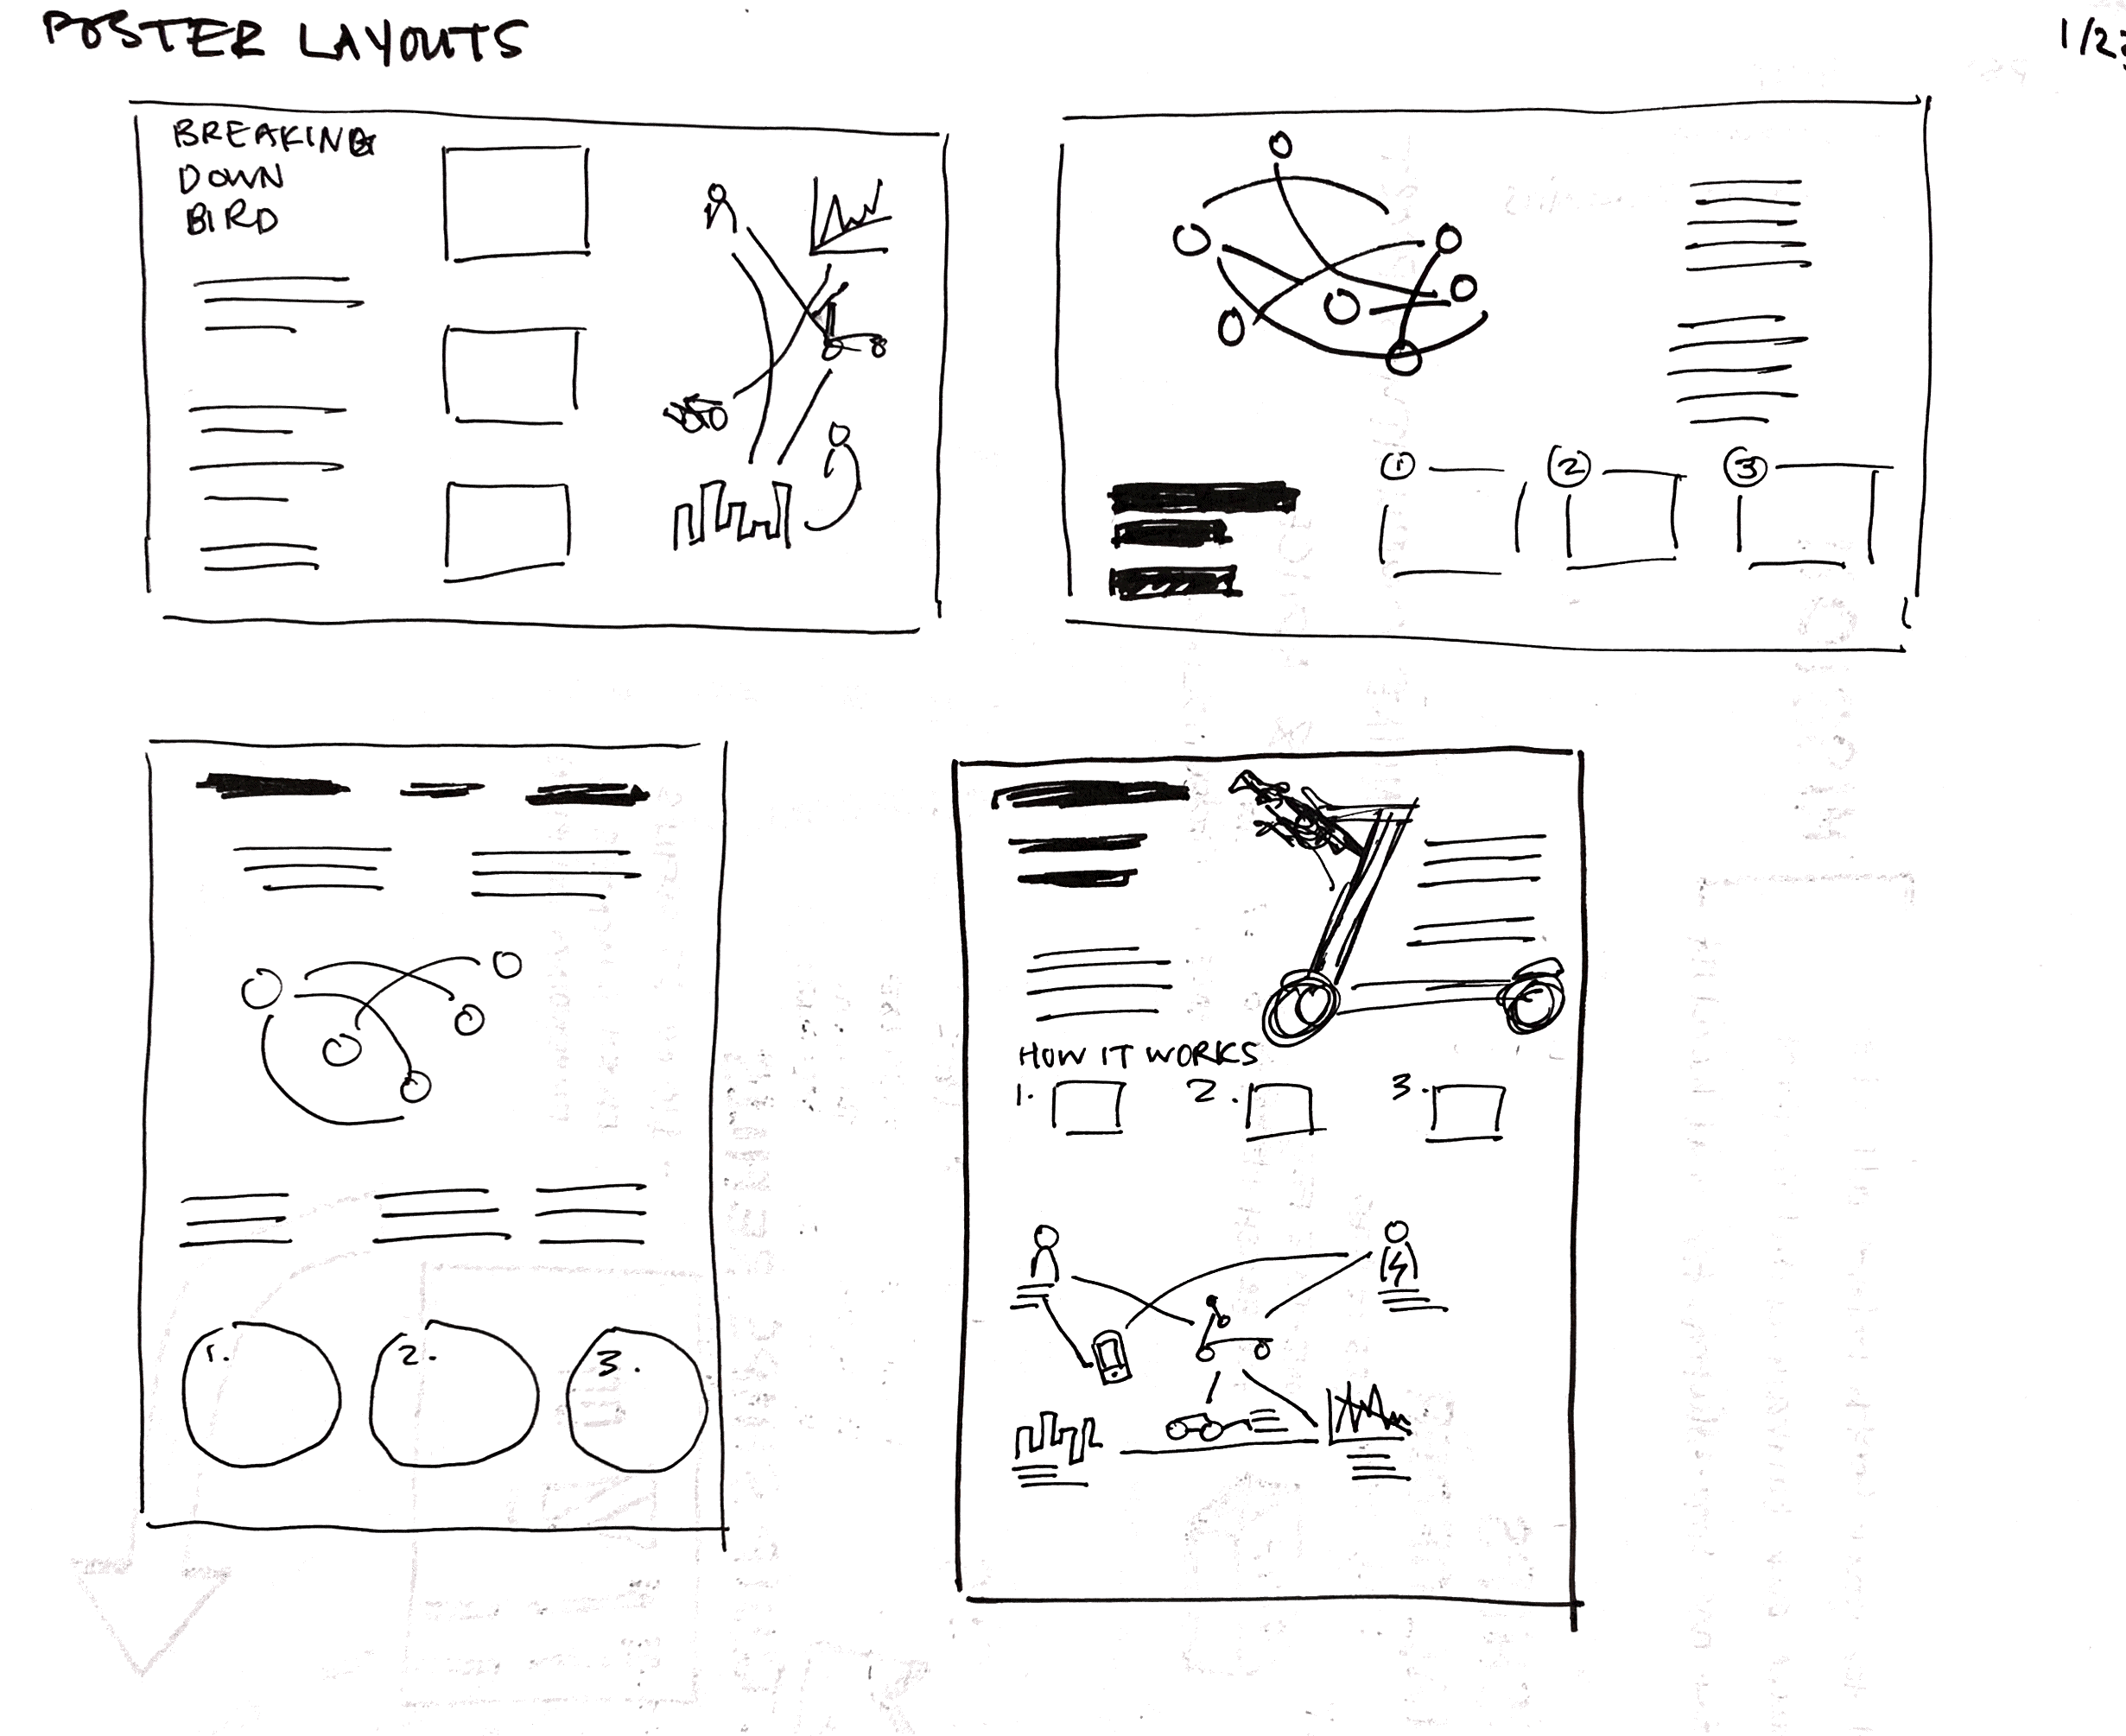 POSTER LAYOUTS
BREAKING
DOWN
BIRD
1
2
3
1.
2.
3.
HOW IT WORKS
1.
2.
3.